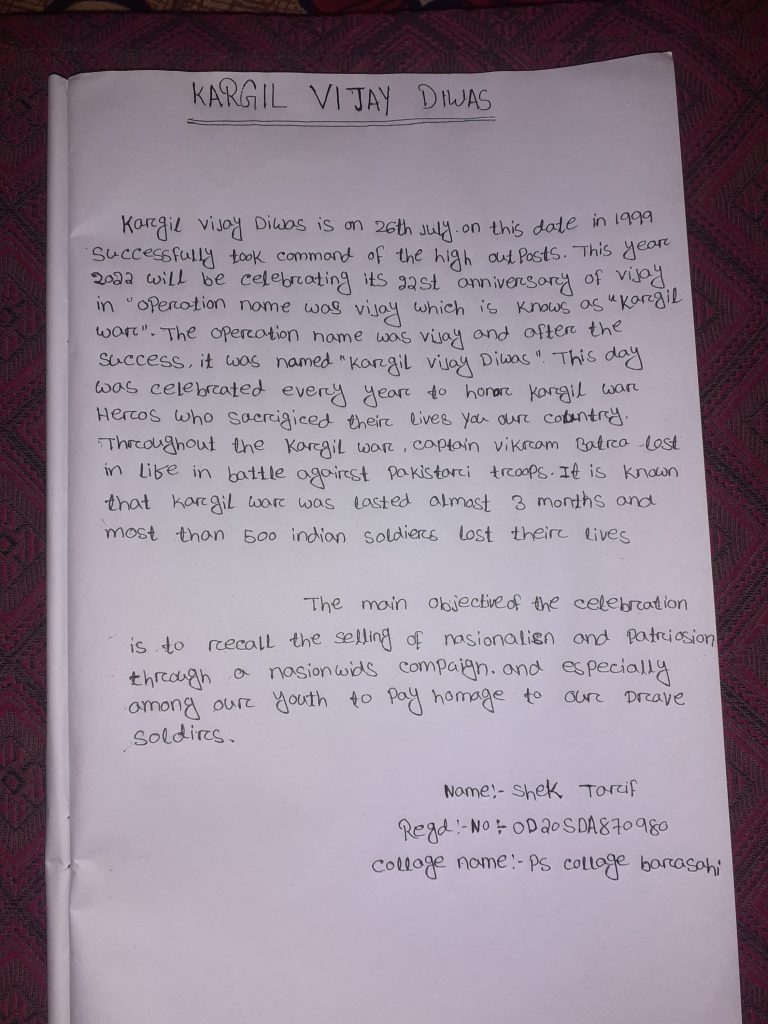 KARGIL VIJAY DIWAS
Kargil vijay Diwas is on 26th July. on this date in 1999
successfully took command of the high outposts. This year
2022 will be celebrating its 22st anniversary of vijay
in "operation name was vijay which is knows as "Kargil
war". The operation name was vijay and after the
success, it was named "Kargil vijay Diwas". This day
was celebrated every year to honor kargil war
Heros who sacrigiced their lives you our country.
Throughout the Kargil war, captain vikram Batra lost
in life in battle against Pakistani troops. It is known
that Kargil war was lasted almost 3 months and
most than 500 indian soldiers lost their lives
The main objective of the celebration
is to recall the selling of nasionalisn and Patriosion
through a nasionwids compaign. and especially
among our youth to Pay homage to our Drave
soldirs.
Name:- Shek Tarif
Regd:-No:- OD20SDA870980
collage name:- PS collage barasahi